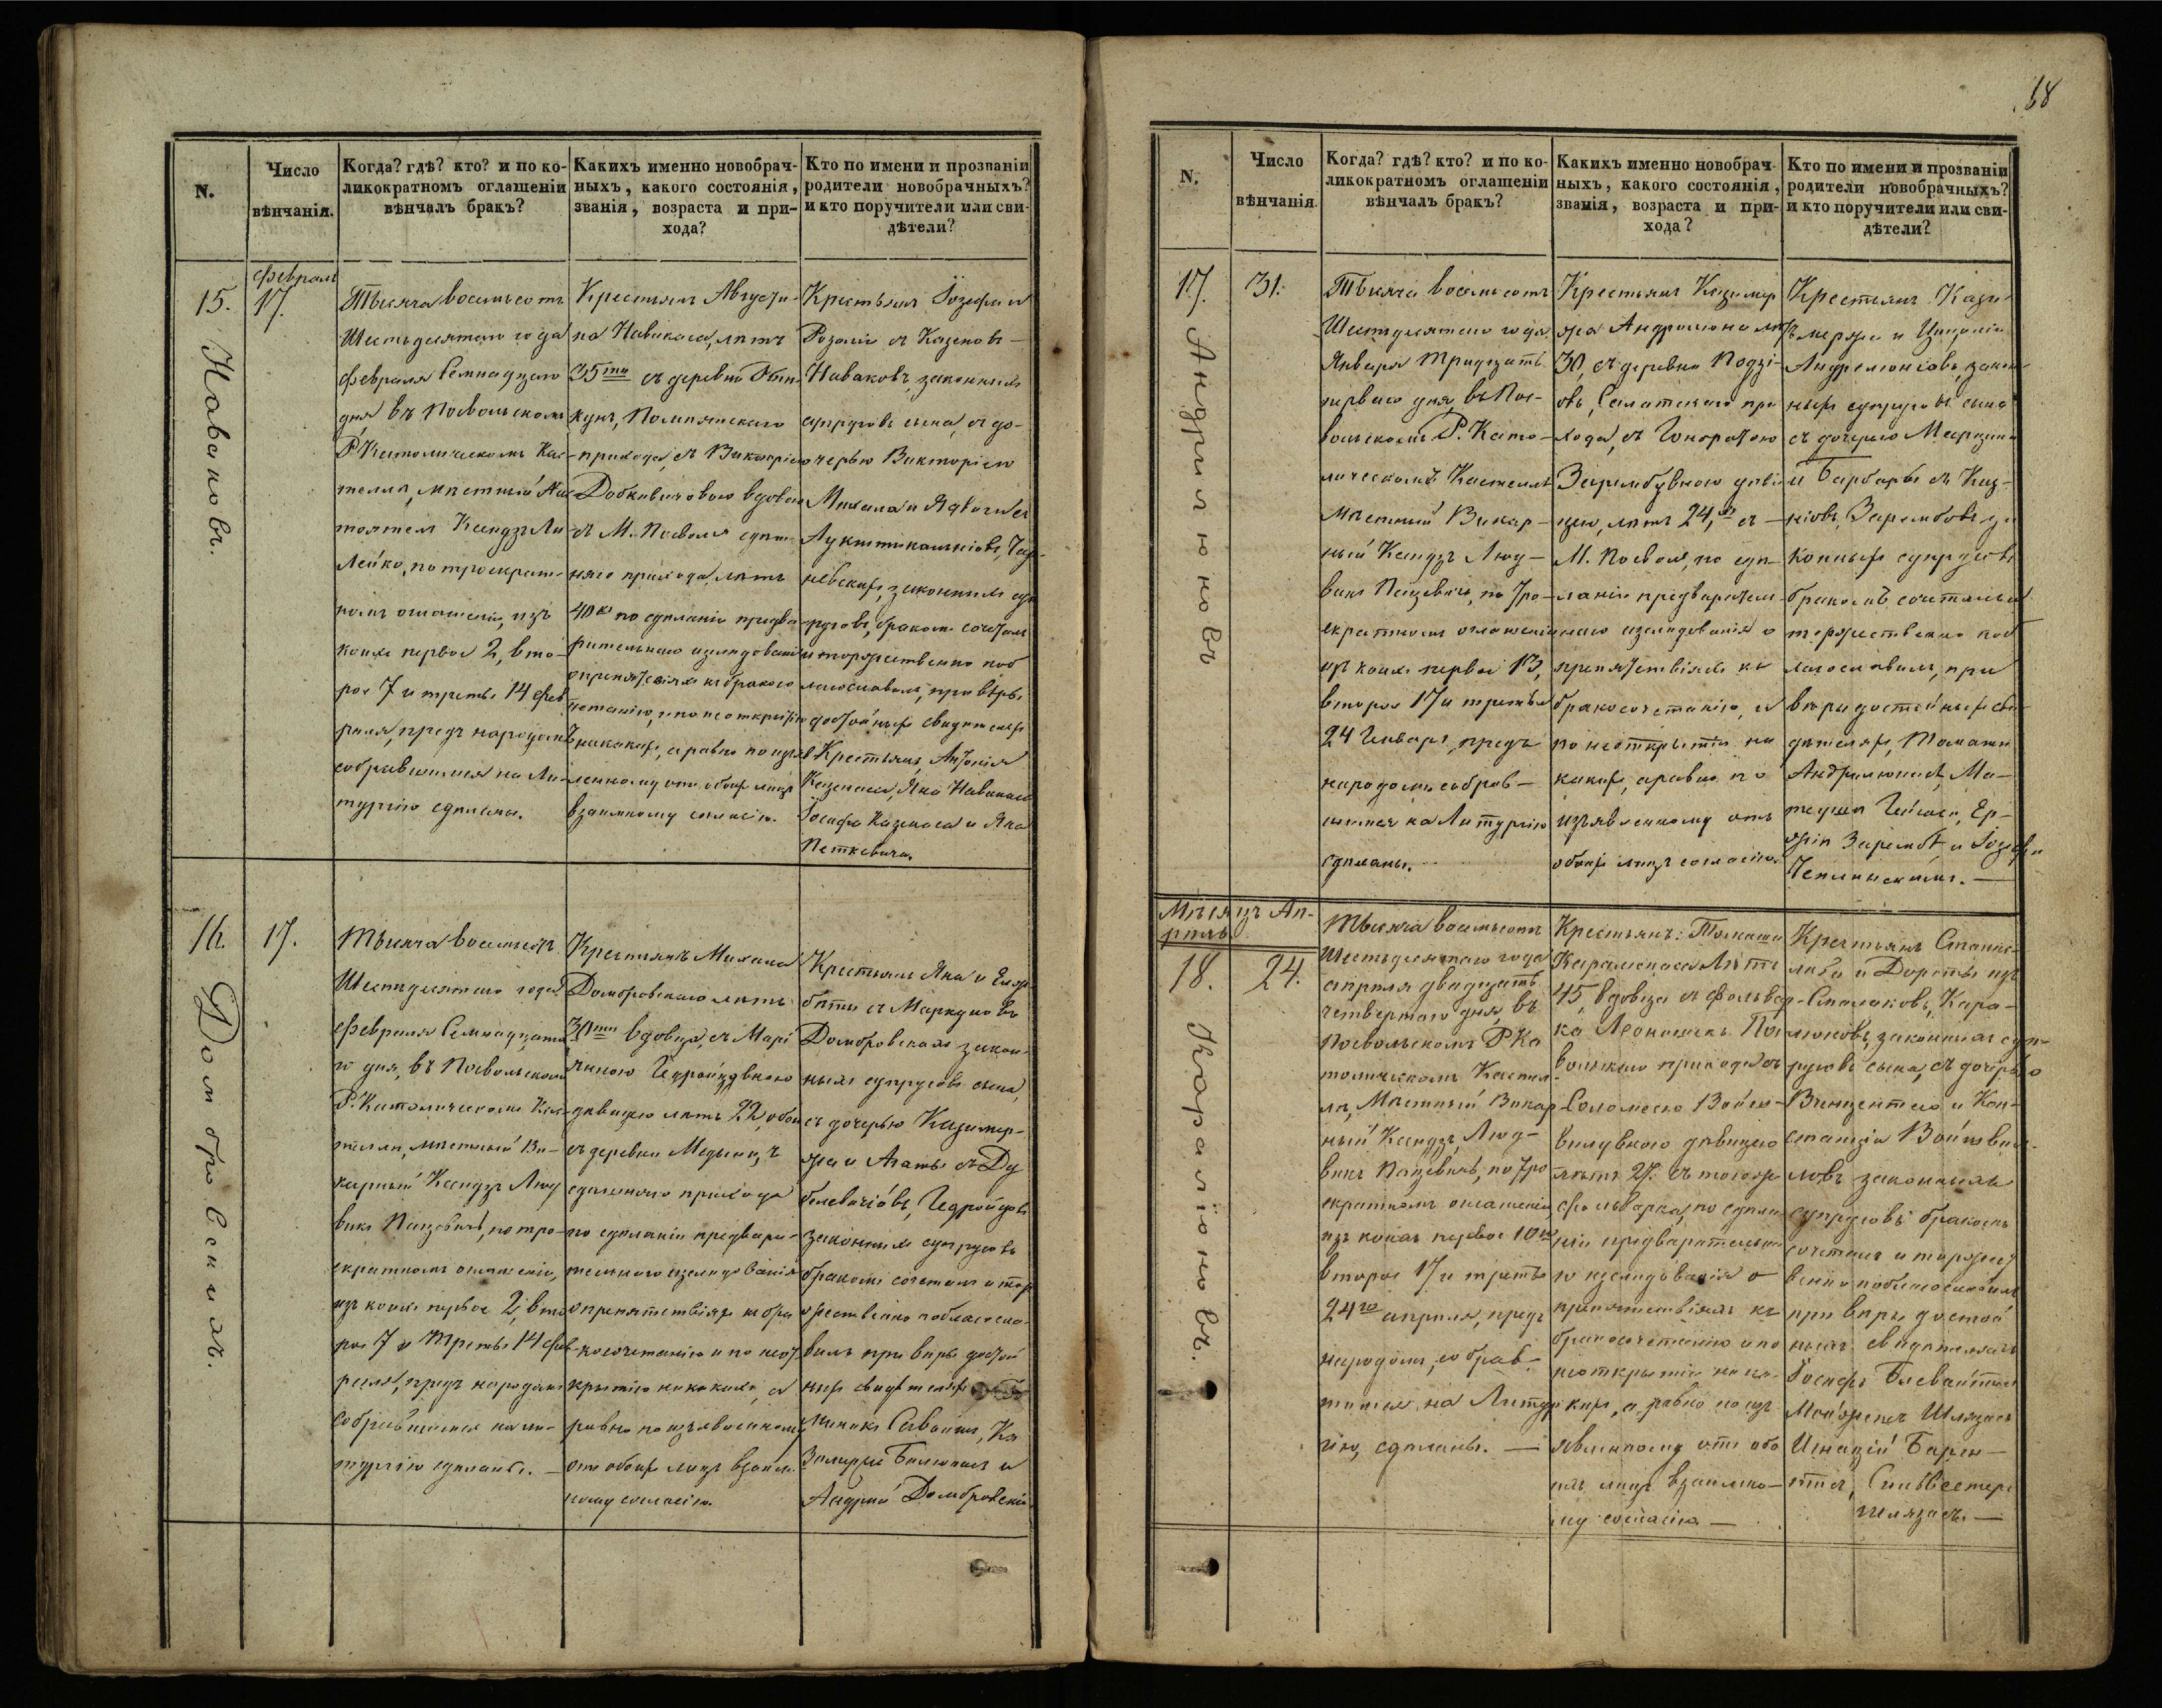 68
N.
Число
вѣнчанія.
Когда? гдѣ? кто? и по ко-
ликократномъ оглашеніи
вѣнчалъ бракъ?
Какихъ именно новобрач-
ныхъ, какого состоянія,
званія, возраста и при-
хода?
Кто по имени и прозваніи
родители новобрачныхъ?
и кто поручители или сви-
дѣтели?
февраль
15.
17.
Новаковъ.
Тысяча восемьсотъ
Шестьдесятаго года
февраля Семнадцаго
дня, въ Посвольскомъ
Р. Католическомъ Кос-
теллѣ, мѣстный На
стоятель Ксендзъ Ли
Лейко, по троекрат-
номъ оглашеніи, изъ
коихъ первое 2, вто-
рое 7 и третье 14 фев
раля, предъ народомъ
собравшимся на Ли-
тургію сдѣланы.
Крестьянъ Августи-
на Навакаса, лѣтъ
35ти съ деревни
Помпянскаго
прихода, съ Викторіею
Добкевичовою вдовою
съ М. Посволя здѣш-
няго прихода лѣтъ
40ка по сдѣланіи предва
рительнаго изслѣдованія
о препятствіяхъ къ бракосо
четанію, и по неоткрытію
никакихъ, а равно по изъяв
ленному отъ обоихъ лицъ
взаимному согласію.
Крестьянъ Іозефа и
Розаліи съ Казеновъ
Наваковъ, законныхъ
супруговъ сына, съ до-
черью Викторіею
Михала и Ядвиги съ
законныхъ суп
руговъ, бракомъ сочеталъ
и торжественно поб
лагословилъ, при вѣры
достойныхъ свидѣтеляхъ
Крестьянъ, Антонія
Казенаса, Яна Навакаса
Іосифа Казенаса и Яна
Петкевича.
16.
17.
Домбровскихъ.
Тысяча восемьсотъ
Шестидесятаго года
февраля Семнадцата
го дня, въ Посвольскомъ
Р. Католическомъ Кос-
теллѣ, мѣстный Ви-
карный Ксендзъ Люд
викъ Пацевичъ, по тро-
екратномъ оглашеніи,
изъ коихъ первое 2, вто
рое 7 и Третье 14 фев-
раля, предъ народомъ
собравшимся на ли-
тургію сдѣланы.
Крестьянъ Михала
Домбровскаго лѣтъ
30ти вдовца, съ Марі
янною Гедройцувною
дѣвицею лѣтъ 22, обои
съ деревни
здѣшняго прихода
по сдѣланіи предвари-
тельнаго изслѣдованія
о препятствіяхъ къ бра
косочетанію и по неот
крытію никакихъ, а
равно по изъявленному
отъ обоихъ лицъ взаим-
ному согласію.
Крестьянъ Яна и Елж-
бѣты съ Маркуновъ
Домбровскихъ закон-
ныхъ супруговъ сына,
съ дочерью Казимер-
жа и Агаты съ Ду
белевичіовъ, Гедройцовъ
законныхъ супруговъ
бракомъ сочеталъ и тор
жественно поблагосло-
вилъ при вѣры достой
ныхъ свидѣтеляхъ
Ка
зимирже Билюнасъ и
Андрій Домбровскій
N.
Число
вѣнчанія.
Когда? гдѣ? кто? и по ко-
ликократномъ оглашеніи
вѣнчалъ бракъ?
Какихъ именно новобрач-
ныхъ, какого состоянія,
званія, возраста и при-
хода?
Кто по имени и прозваніи
родители новобрачныхъ?
и кто поручители или сви-
дѣтели?
17.
31.
Андрилюновъ
Тысяча восемьсотъ
Шестьдесятаго года
Января тридцать
перваго дня, въ Пос-
вольскомъ Р. Като-
лическомъ Костеллѣ
мѣстный Викар-
ный Ксендзъ Люд-
викъ Пацевичъ, по тро-
екратномъ оглашеніи
изъ коихъ первое 13,
второе 17 и третье
24 Генваря, предъ
народомъ собрав-
шимся на Литургію
сдѣланы.
Крестьянъ Казимер
жа Андрилюна лѣтъ
30, съ деревни
прихода, съ Гоноратою
Зарембувною дѣви
цею, лѣтъ 24, съ
М. Посволя, по сдѣ-
ланіи предварителъ-
наго изслѣдованія о
препятствіяхъ къ
бракосочетанію, и
по неоткрытіи ни
какихъ, а равно по
изъявленному отъ
обоихъ лицъ согласію.
Крестьянъ Кази-
мержа и Цициліи
Андрелюніовъ, закон-
ныхъ супруговъ сына
съ дочерью Марцина
и Барбары съ Каз-
ніовъ, Зарембовъ за
конныхъ супруговъ
бракомъ сочеталъ и
торжественно поб
лагословилъ, при
вѣры достойныхъ сви
дѣтеляхъ, Томаши
Андрилюнасъ, Ма-
теушъ Ер-
жіи Зарембѣ, и Іозефѣ
Чеплинскимъ.
Мѣсяцъ Ап-
рѣль
18.
24.
Каралюновъ.
Тысяча восемьсотъ
Шестьдесятаго года
апрѣля двадцать
четвертаго дня, въ
Посвольскомъ Р. Ка
толическомъ Костел-
лѣ, Мѣстный Викар
ный Ксендзъ, Люд-
викъ Пацевичъ, по тро
екратномъ оглашеніи
изъ коихъ первое 10
второе 17 и третье
24го апрѣля, предъ
народомъ, собрав-
шимся на Литур
гію, сдѣланы.
Крестьянъ: Томаша
Лѣтъ
45, вдовца съ фольвар-
ка Леонишекъ Пос
вольскаго прихода съ
Саломеею Войш-
вилувною дѣвицею
лѣтъ 27. съ тогоже
фольварка, по сдѣла
ніи предварительна
го изслѣдованія о
препятствіяхъ къ
бракосочетанію и по
неоткрытіи ника-
кихъ, а равно по изъ
явленному отъ обо
ихъ лицъ взаимно-
му согласію
Крестьянъ Станис-
лава и Дороты изъ
законныхъ суп-
руговъ сына, съ дочерью
Винцентаго и Кон-
станціи Войшви-
ловъ законныхъ
супруговъ бракомъ
сочеталъ и торжест
венно поблагословилъ
при вѣры достой
ныхъ свидѣтеляхъ
Іосифъ
Шлязасъ
Игнацій
Сильвестеръ
Шлязасъ.